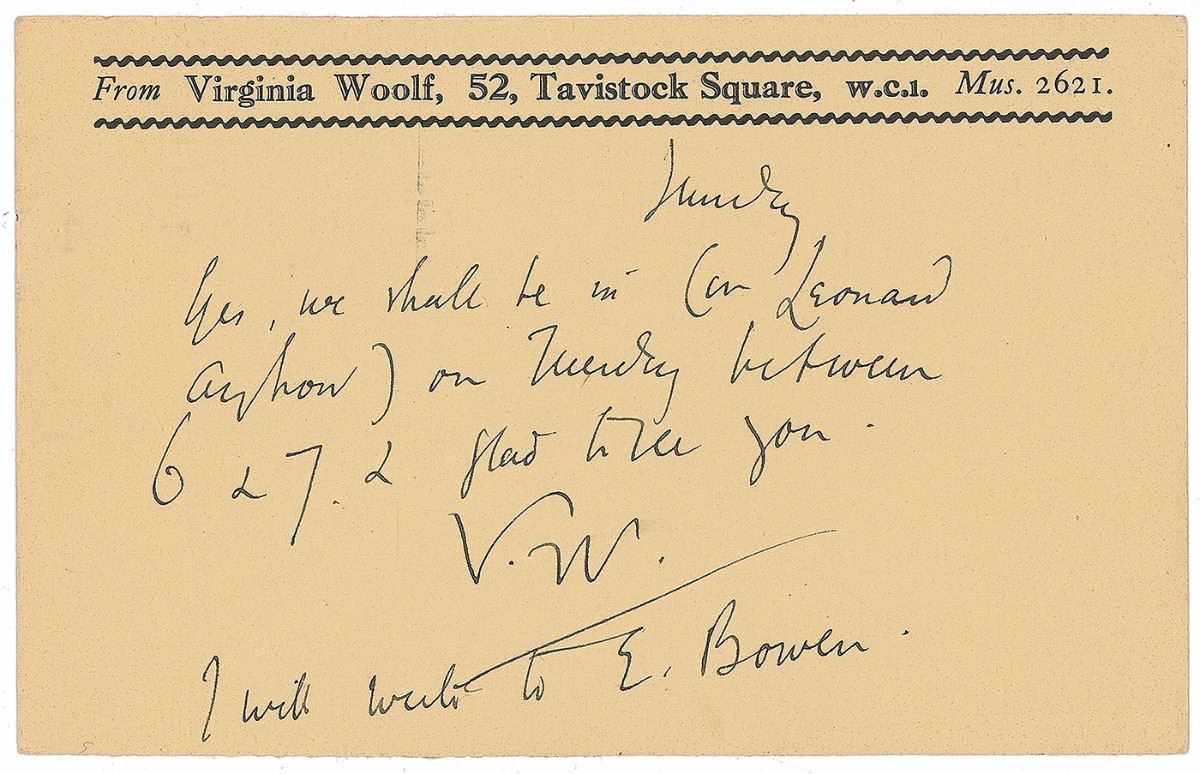 From Virginia Woolf, 52, Tavistock Square, W.C.1. Mus. 2621.
Sunday
Yes, we shall be in (or Leonard
anyhow) on Tuesday between
6 & 7. & glad to see you.
V.W.
I will write to E. Bowen.